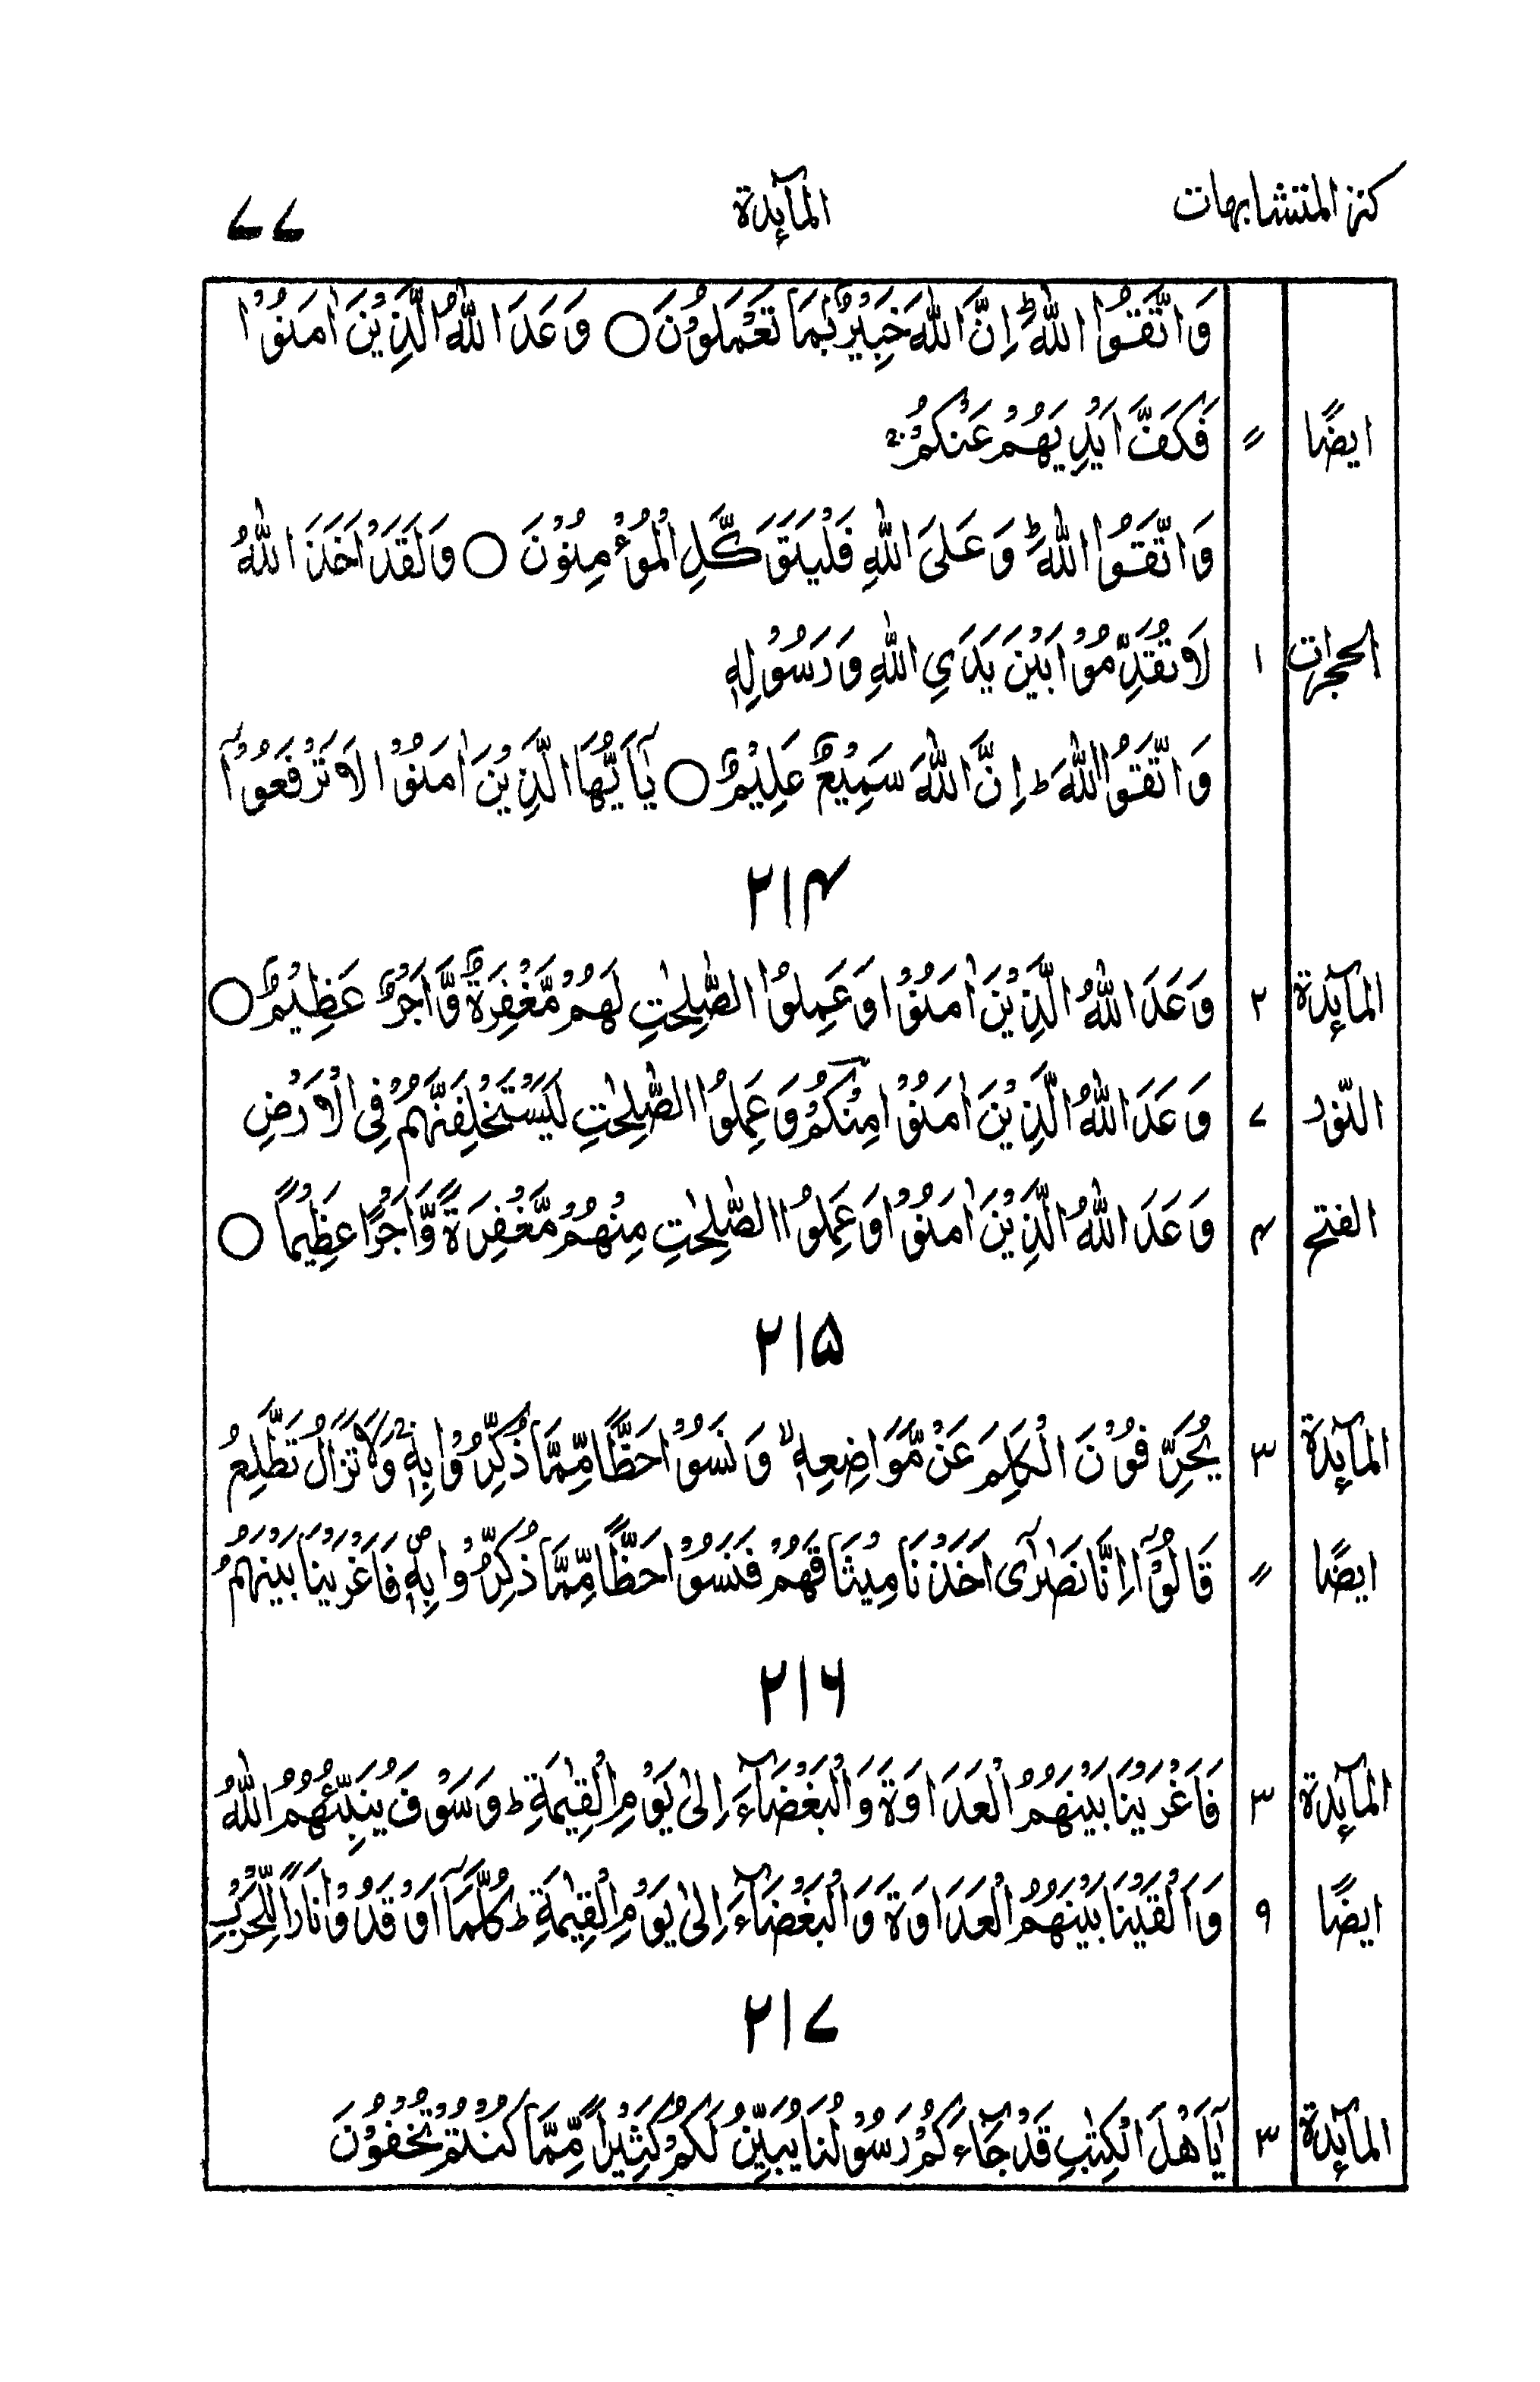 كنز المتشابهات المآئدة ۷۷
وَاتَّقُوا اللّٰهَ ؕ اِنَّ اللّٰهَ خَبِيْرٌۢ بِمَا تَعْمَلُوْنَ ○ وَعَدَ اللّٰهُ الَّذِيْنَ اٰمَنُوْا
ايضًا 〃 فَكَفَّ اَيْدِيَهُمْ عَنْكُمْ ۚ
وَاتَّقُوا اللّٰهَ ؕ وَعَلَى اللّٰهِ فَلْيَتَوَكَّلِ الْمُؤْمِنُوْنَ ○ وَلَقَدْ اَخَذَ اللّٰهُ
الحجرات ۱ لَا تُقَدِّمُوْا بَيْنَ يَدَيِ اللّٰهِ وَرَسُوْلِهٖ
وَاتَّقُوا اللّٰهَ ؕ اِنَّ اللّٰهَ سَمِيْعٌ عَلِيْمٌ ○ يٰٓاَيُّهَا الَّذِيْنَ اٰمَنُوْا لَا تَرْفَعُوْٓا
۲۱۴
المآئدة ۲ وَعَدَ اللّٰهُ الَّذِيْنَ اٰمَنُوْا وَعَمِلُوا الصّٰلِحٰتِ لَهُمْ مَّغْفِرَةٌ وَّاَجْرٌ عَظِيْمٌ ○
النّور ۷ وَعَدَ اللّٰهُ الَّذِيْنَ اٰمَنُوْا مِنْكُمْ وَعَمِلُوا الصّٰلِحٰتِ لَيَسْتَخْلِفَنَّهُمْ فِي الْاَرْضِ
الفتح ۴ وَعَدَ اللّٰهُ الَّذِيْنَ اٰمَنُوْا وَعَمِلُوا الصّٰلِحٰتِ مِنْهُمْ مَّغْفِرَةً وَّاَجْرًا عَظِيْمًا ○
۲۱۵
المآئدة ۳ يُحَرِّفُوْنَ الْكَلِمَ عَنْ مَّوَاضِعِهٖ ۙ وَنَسُوْا حَظًّا مِّمَّا ذُكِّرُوْا بِهٖ ۚ وَلَا تَزَالُ تَطَّلِعُ
ايضًا 〃 قَالُوْٓا اِنَّا نَصٰرٰٓى اَخَذْنَا مِيْثَاقَهُمْ فَنَسُوْا حَظًّا مِّمَّا ذُكِّرُوْا بِهٖ ۪ فَاَغْرَيْنَا بَيْنَهُمُ
۲۱۶
المآئدة ۳ فَاَغْرَيْنَا بَيْنَهُمُ الْعَدَاوَةَ وَالْبَغْضَآءَ اِلٰى يَوْمِ الْقِيٰمَةِ ؕ وَسَوْفَ يُنَبِّئُهُمُ اللّٰهُ
ايضًا ۹ وَاَلْقَيْنَا بَيْنَهُمُ الْعَدَاوَةَ وَالْبَغْضَآءَ اِلٰى يَوْمِ الْقِيٰمَةِ ؕ كُلَّمَآ اَوْقَدُوْا نَارًا لِّلْحَرْبِ
۲۱۷
المآئدة ۳ يٰٓاَهْلَ الْكِتٰبِ قَدْ جَآءَكُمْ رَسُوْلُنَا يُبَيِّنُ لَكُمْ كَثِيْرًا مِّمَّا كُنْتُمْ تُخْفُوْنَ